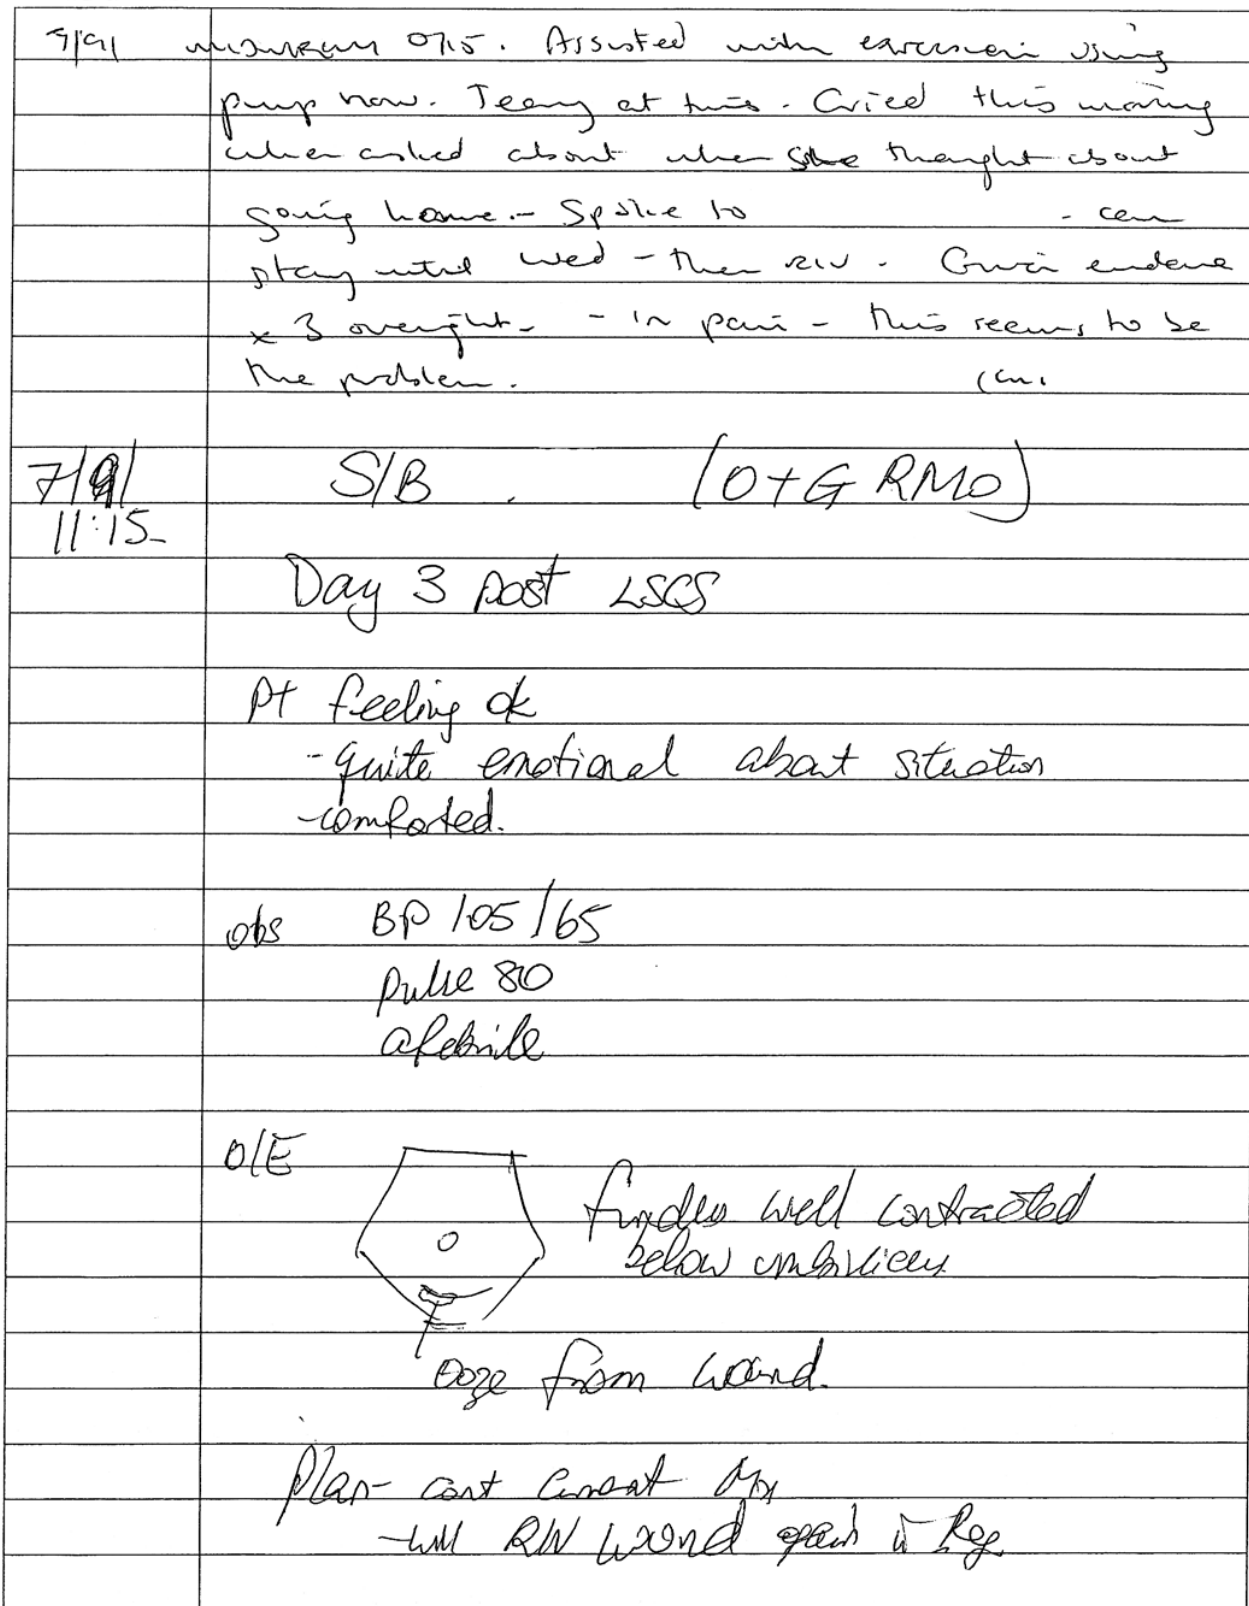 7/9/ Midwifery 0715. Assisted with expression using
pump now. Teary at times. Cried this morning
when asked about when she thought about
going home - Spoke to - can
stay until Wed - then R/V. Given endone
x 3 overnight - in pain - this seems to be
the problem.
7/9/ S/B (O+G RMO)
11:15
Day 3 post LSCS
Pt feeling ok
- quite emotional about situation
- comforted.
obs BP 105/65
Pulse 80
afebrile
O/E
fundus well contracted
below umbilicus
Ooze from wound.
Plan - cont current Mx
- will R/V wound again c̄ Reg